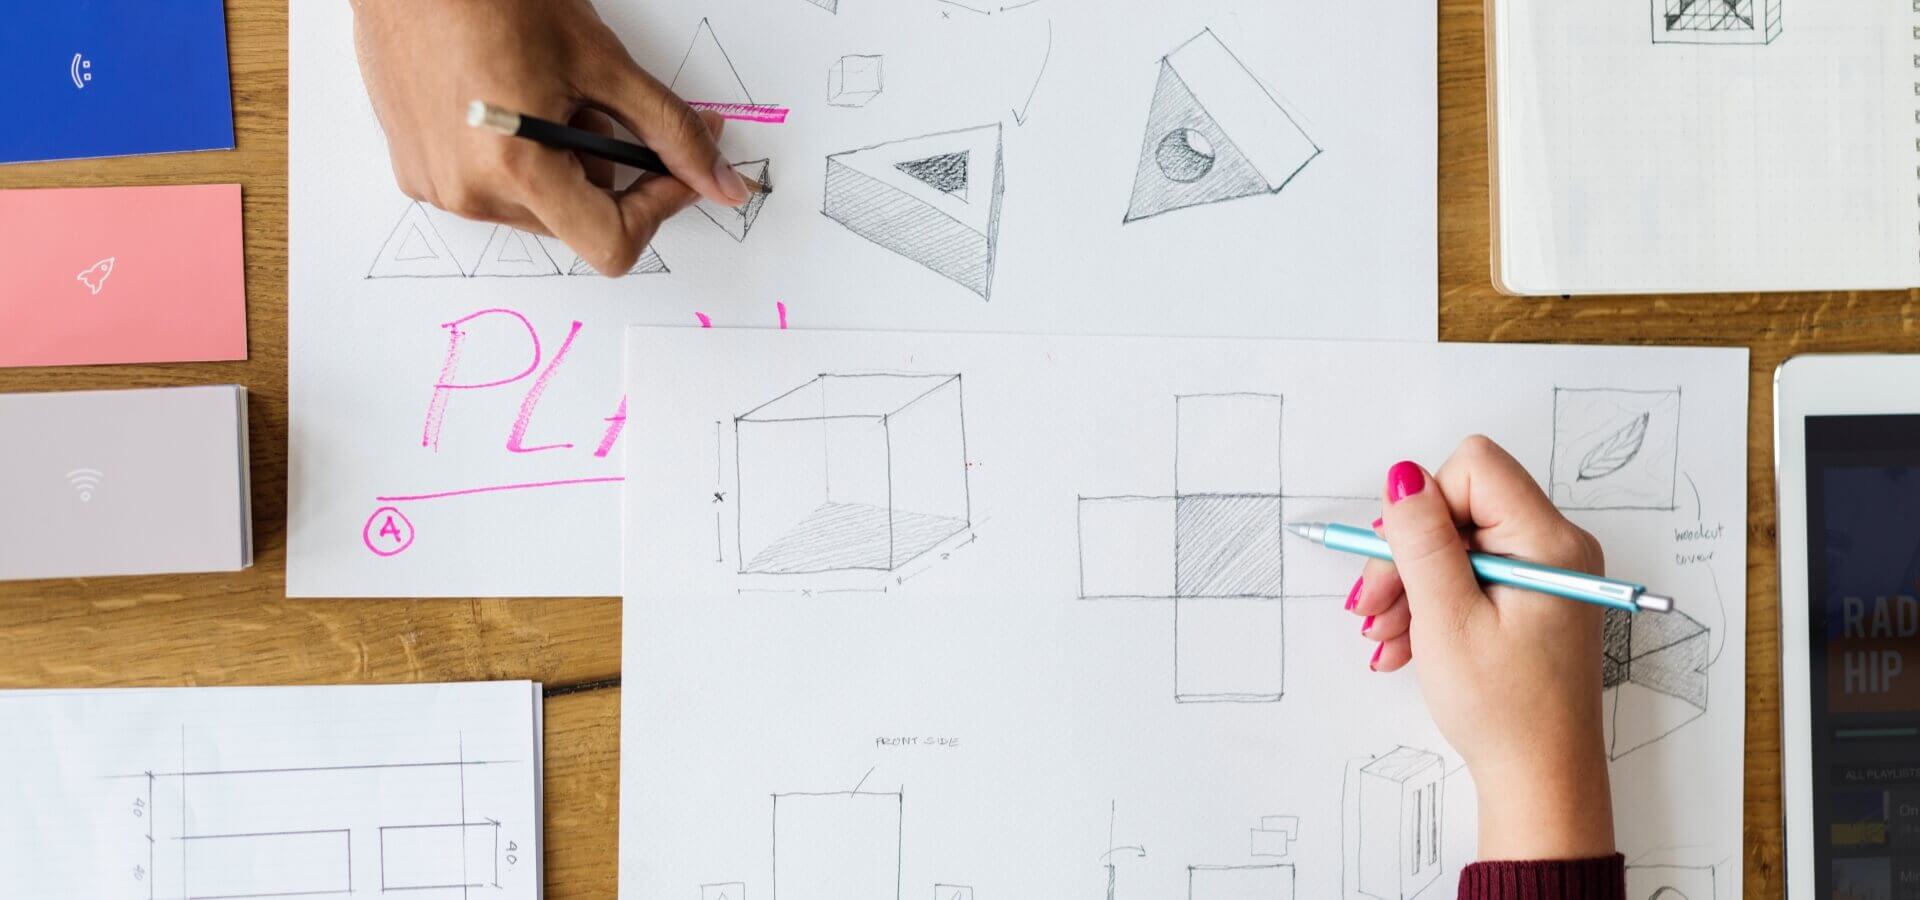 x
PLAN
A
x
x
z
woodcut
cover
FRONT SIDE
40
40
40.
RAD
HIP
ALL PLAYLISTS
On
Min